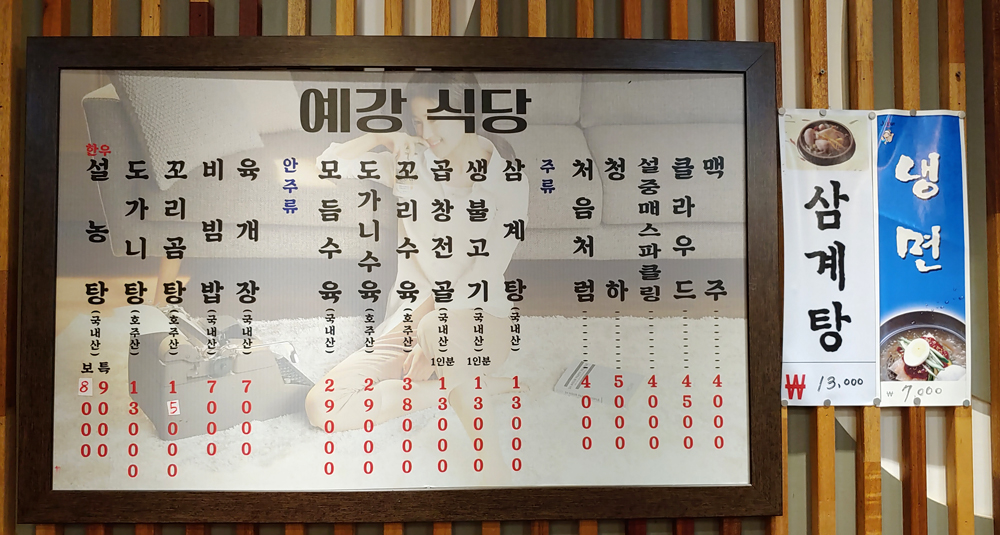 예강 식당
한우
설농탕 (국내산) 보 8000 특 9000
도가니탕 (호주산) 13000
꼬리곰탕 (호주산) 15000
비빔밥 (국내산) 7000
육개장 (국내산) 7000
안주류
모듬수육 (국내산) 29000
도가니수육 (호주산) 29000
꼬리수육 (호주산) 38000
곱창전골 (국내산) 1인분 13000
생불고기 (국내산) 1인분 13000
삼계탕 (국내산) 13000
주류
처음처럼 4000
청하 5000
설중매스파클링 4000
클라우드 4500
맥주 4000
삼계탕
₩ 13,000
냉면
₩ 7,000